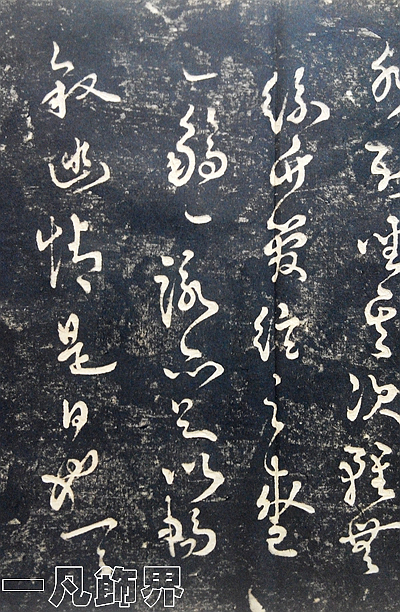 水列坐其次雖無
絲竹管絃之盛
一觴一詠亦足以暢
叙幽情是日也天
一凡飾界